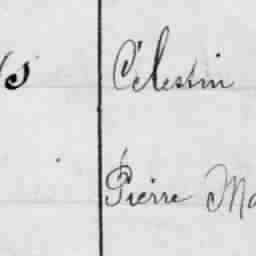 Célestin
Pierre